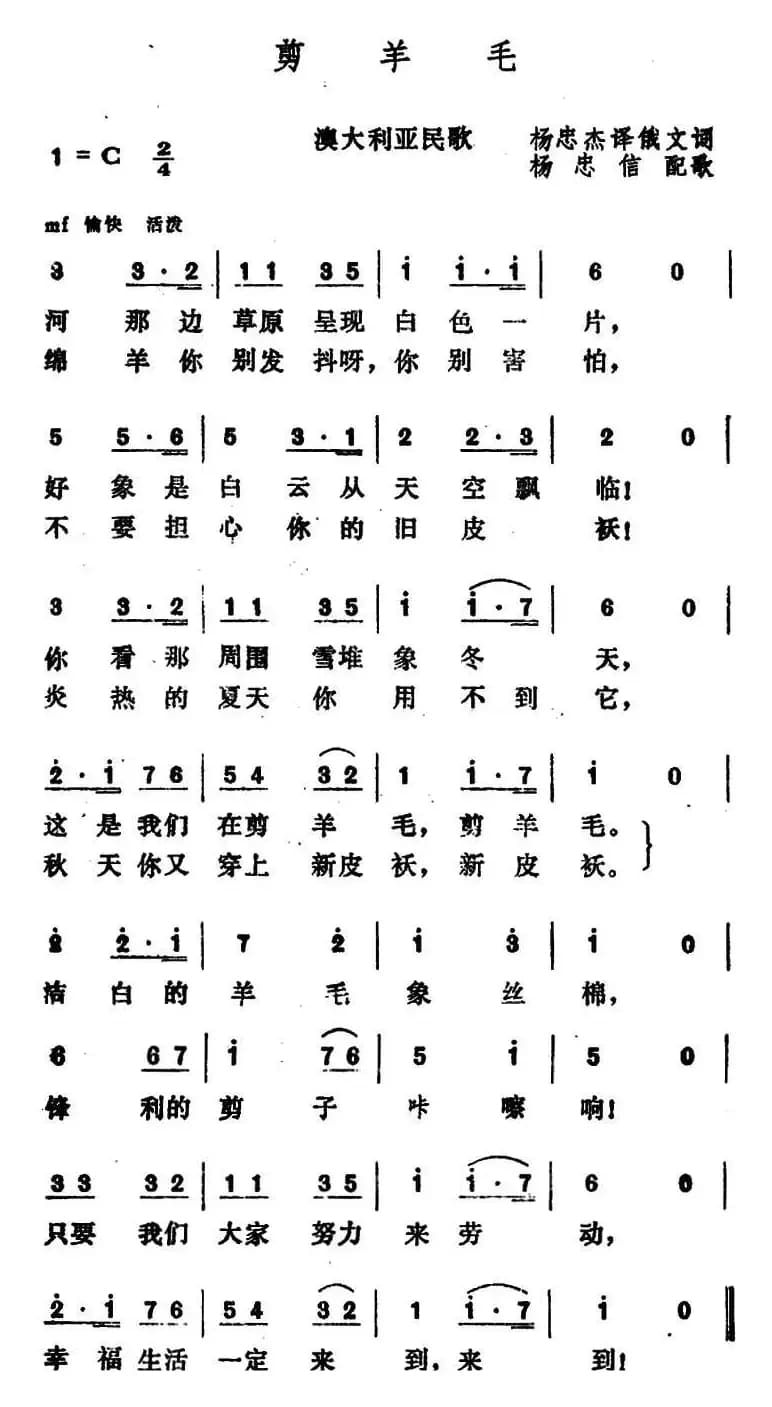 剪羊毛
澳大利亚民歌 杨忠杰译俄文词
1=C 2/4 杨忠信配歌
mf 愉快 活泼
3 3·2 | 1 1 3 5 | i i·i | 6 0 |
河那边草原呈现白色一片，
绵羊你别发抖呀，你别害怕，
5 5·6 | 5 3·1 | 2 2·3 | 2 0 |
好象是白云从天空飘临！
不要担心你的旧皮袄！
3 3·2 | 1 1 3 5 | i i·7 | 6 0 |
你看那周围雪堆象冬天，
炎热的夏天你用不到它，
2̇·i 7 6 | 5 4 3 2 | 1 i·7 | i 0 |
这是我们在剪羊毛，剪羊毛。
秋天你又穿上新皮袄，新皮袄。
2̇ 2̇·i | 7 2̇ | i 3̇ | i 0 |
洁白的羊毛象丝棉，
6 6 7 | i 7 6 | 5 i | 5 0 |
锋利的剪子咔嚓响！
3 3 3 2 | 1 1 3 5 | i i·7 | 6 0 |
只要我们大家努力来劳动，
2̇·i 7 6 | 5 4 3 2 | 1 i·7 | i 0 ‖
幸福生活一定来到，来到！